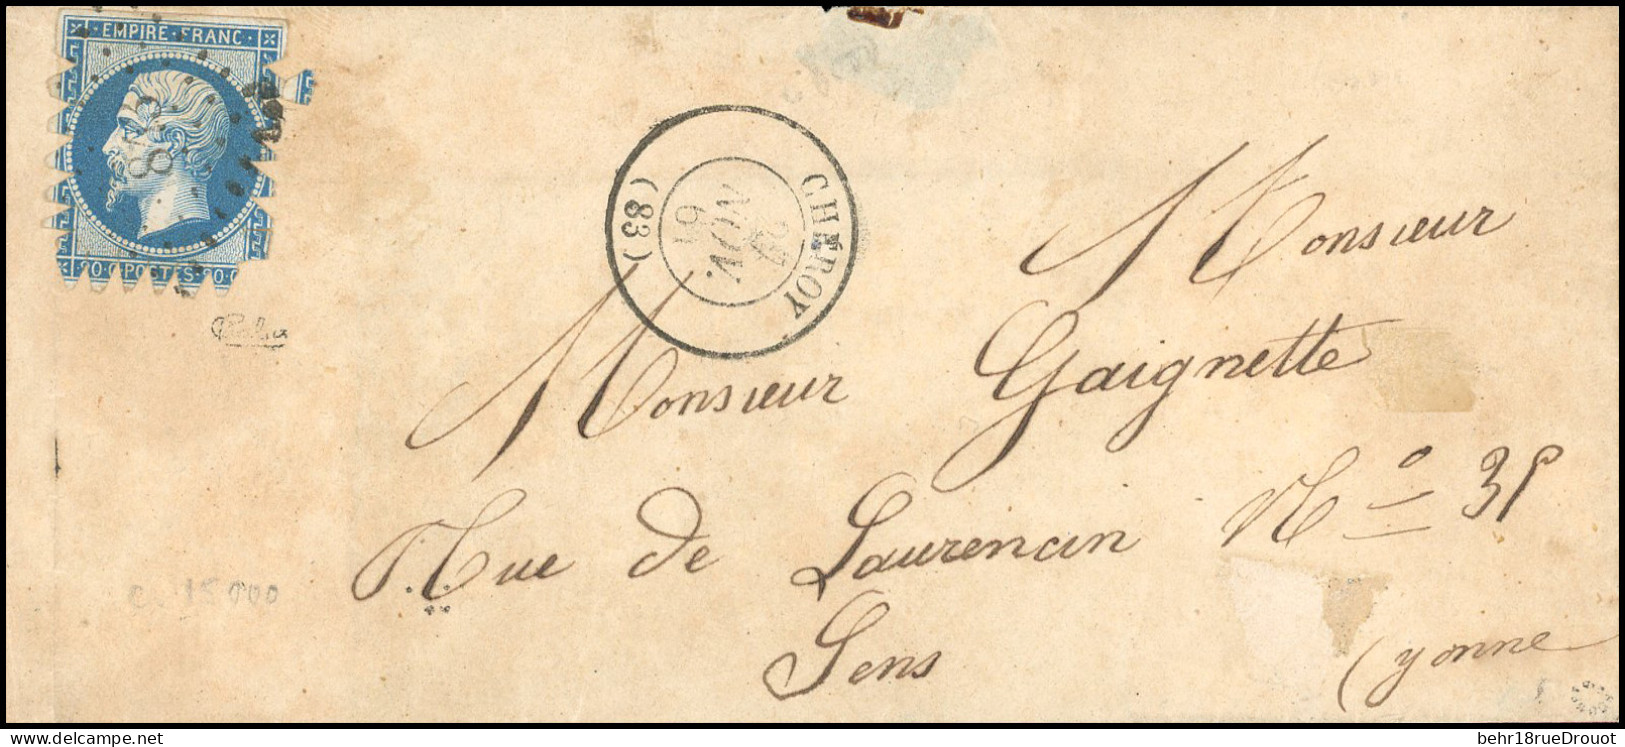 EMPIRE FRANC
20.C POSTES 20.C
CHÉROY
24
NOV.
61
(83)
Monsieur
Monsieur Gaignette
Rue de Laurencin N° 35
Sens
(yonne
C. 15000
delcampe.net
behr18rueDrouot